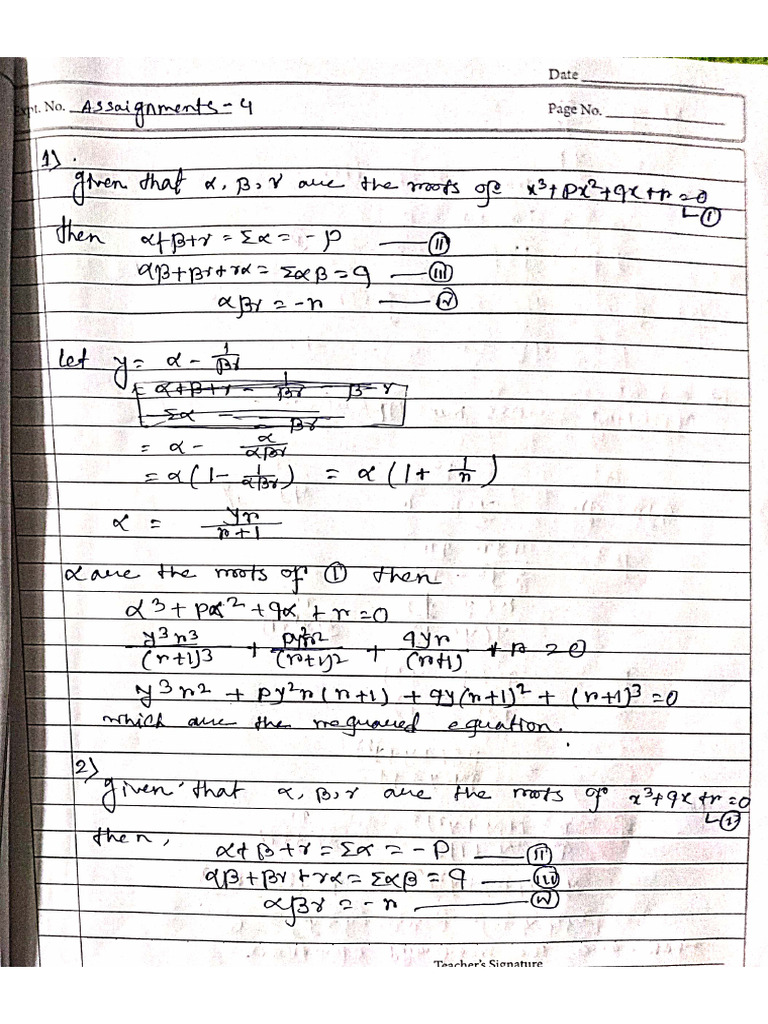 Date
Expt. No. Assaignments-4
Page No.
1)
given that α, β, γ are the roots of x³+px²+qx+r=0
└①
then α+β+γ = Σα = -p —— ⓘⓘ
αβ+βγ+γα = Σαβ = q —— ⓘⓘⓘ
αβγ = -r —— ⓘⓥ
let y = α - 1/βγ
= α+β+γ - 1/βγ - β-γ
Σα - βγ
= α - α/αβγ
= α(1 - 1/αβγ) = α(1 + 1/r)
α = yr/r+1
α are the roots of ① then
α³ + pα² + qα + r = 0
y³r³/(r+1)³ + py²r²/(r+1)² + qyr/(r+1) + r = 0
y³r² + py²r(r+1) + qy(r+1)² + (r+1)³ = 0
which are the requared equation.
2)
given that α, β, γ are the roots of x³+qx+r=0
└①
then,
α+β+γ = Σα = -p —— ⓘⓘ
αβ+βγ+γα = Σαβ = q —— ⓘⓘⓘ
αβγ = -r —— ⓘⓥ
Teacher's Signature